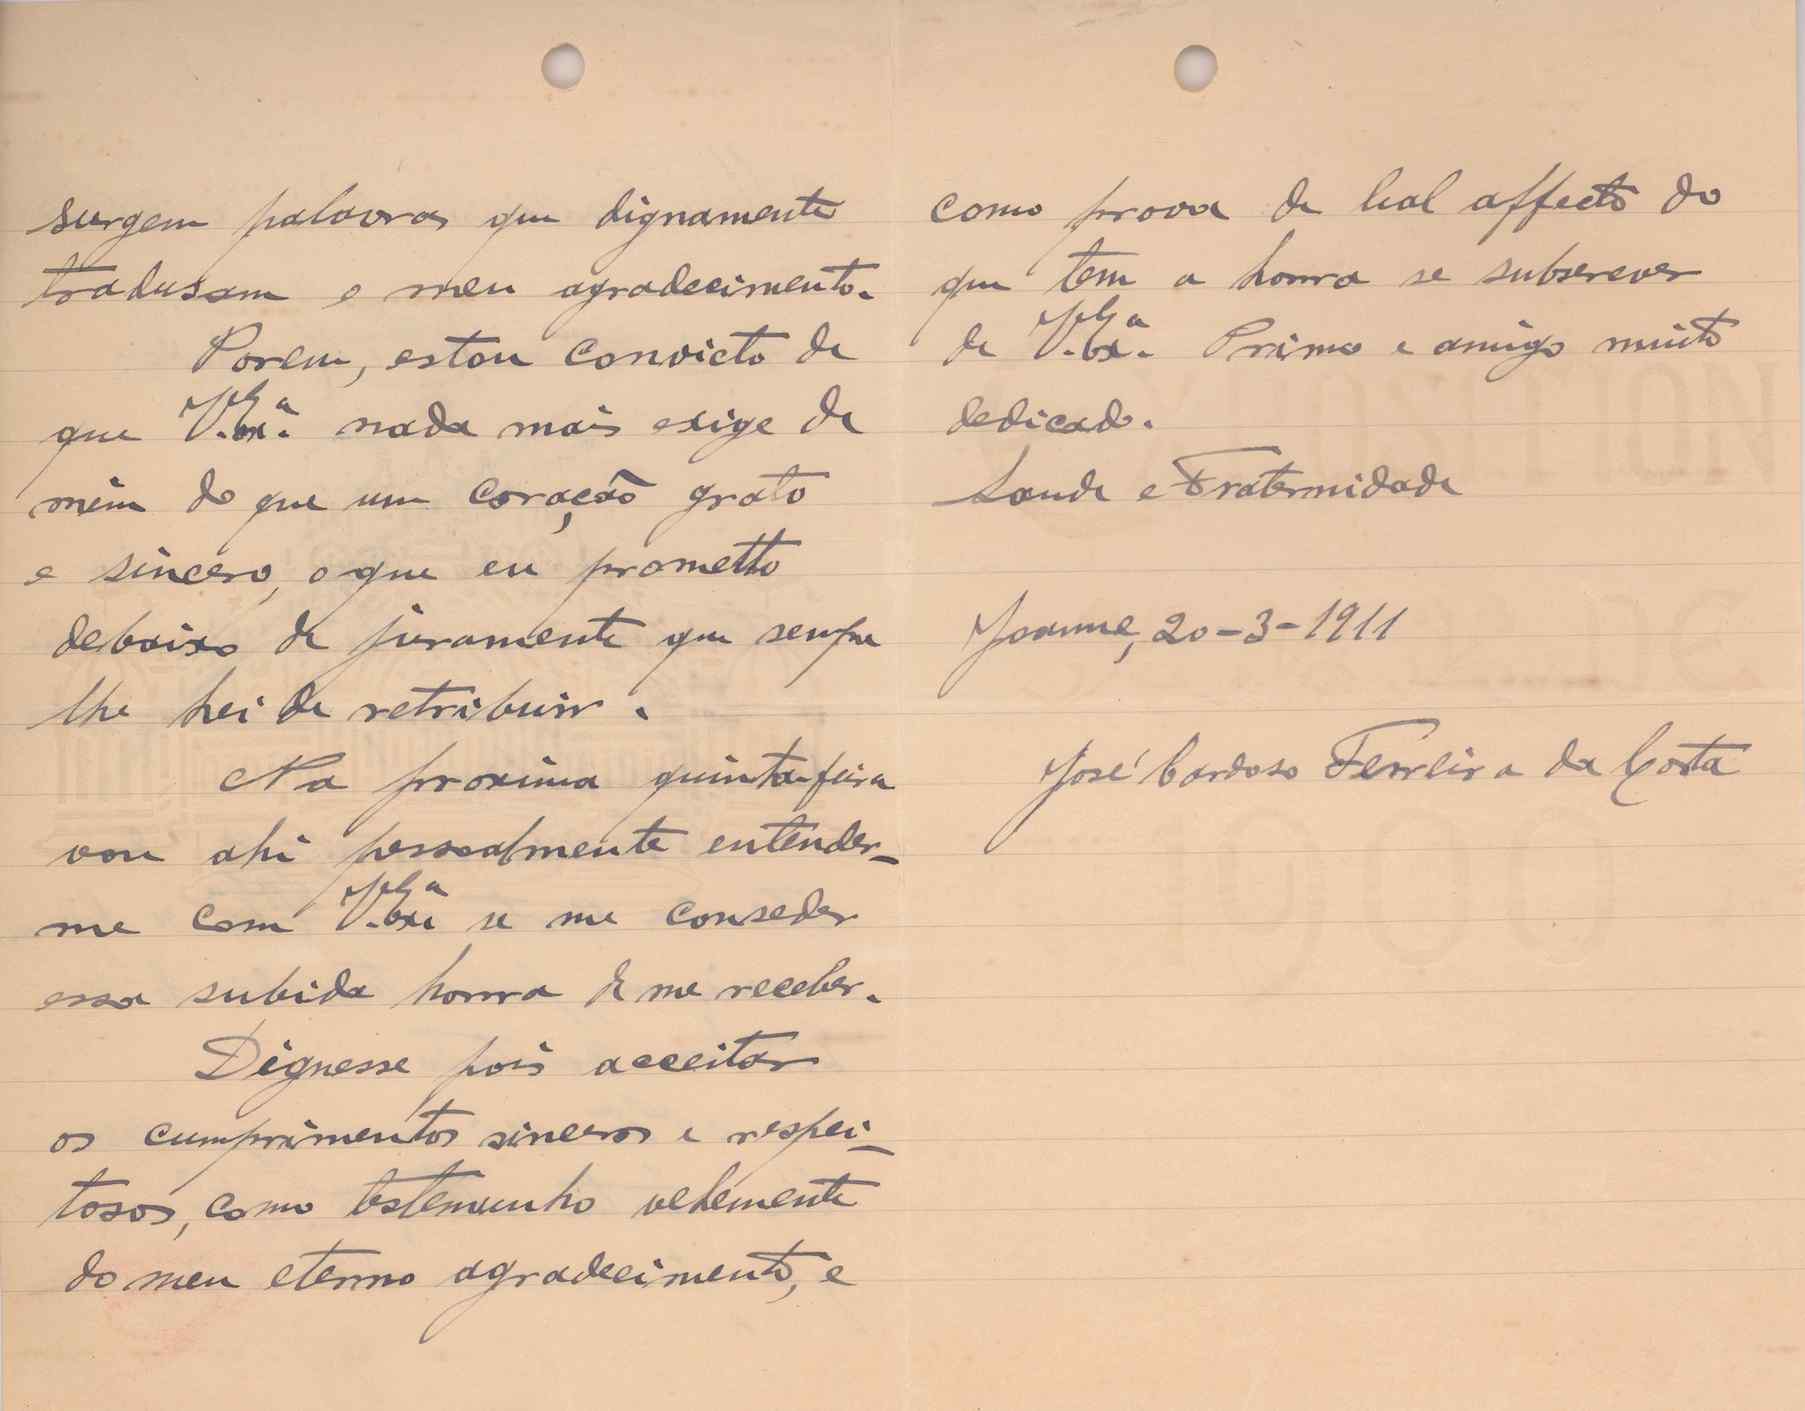 surgem palavras que dignamente
tradusam o meu agradecimento.
Porem, estou convicto de
que V. Ex.ª nada mais exige de
mim do que um coração grato
e sincero, o que eu prometto
debaixo de juramento que sempre
lhe hei de retribuir.
Na proxima quinta-feira
vou ahi pessoalmente entender-
me com V. Ex.ª se me conseder
essa subida honra de me receber.
Dignesse pois acceitar
os cumprimentos sinceros e respei-
tosos, como testemunho vehemente
do meu eterno agradecimento, e
como prova de leal affecto do
que tem a honra se subscrever
de V. Ex.ª Primo e amigo muito
dedicado.
Saude e Fraternidade
Joanne, 20-3-1911
José Cardoso Ferreira da Costa